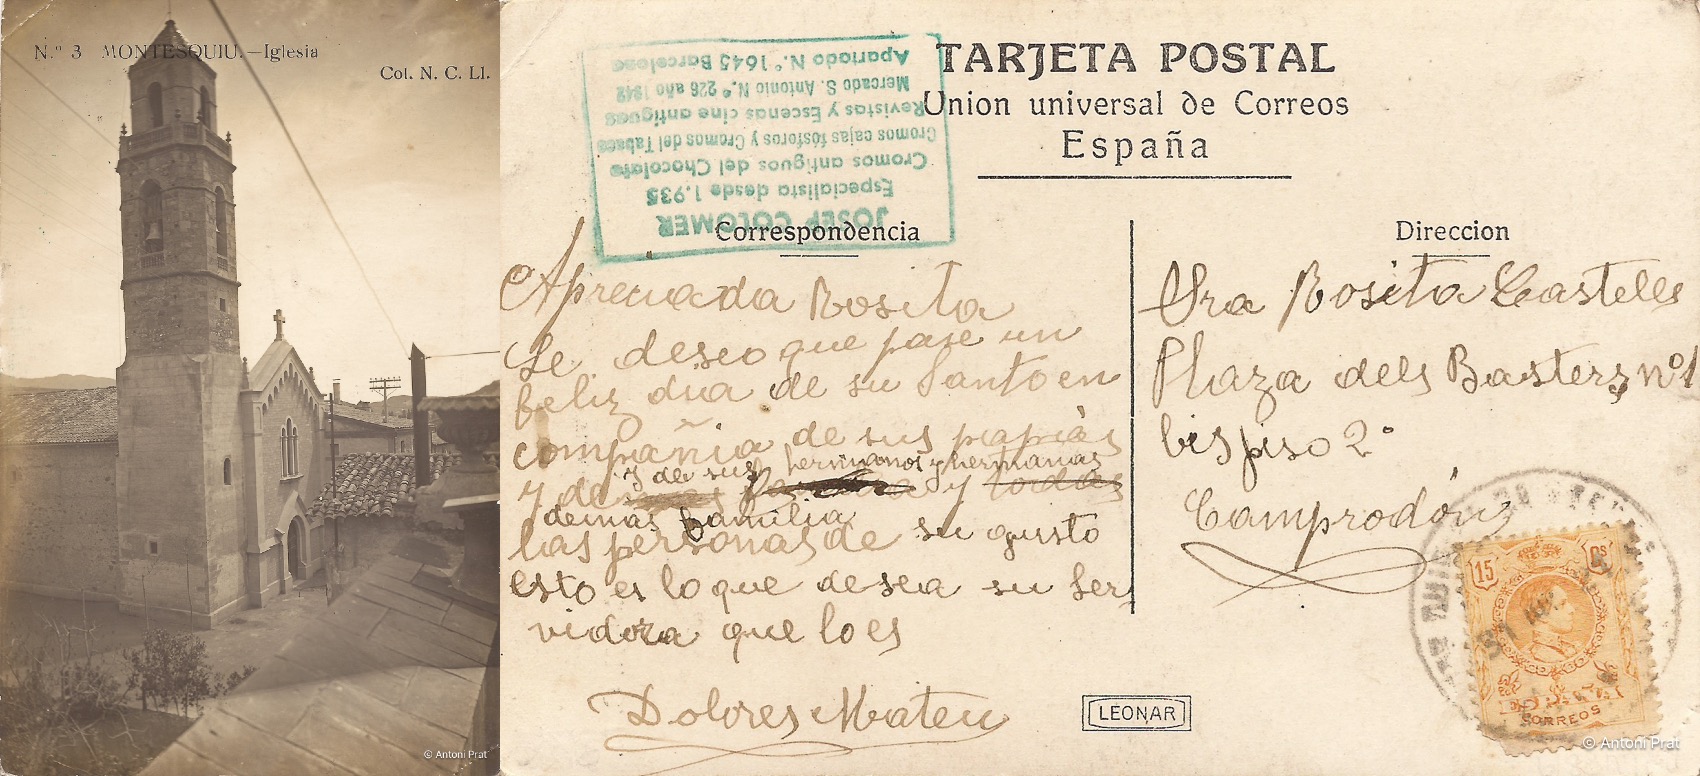 N.º 3 MONTESQUIU.—Iglesia
Col. N. C. Ll.
© Antoni Prat
TARJETA POSTAL
Union universal de Correos
España
JOSEP COLOMER
Especialista desde 1.935
Cromos antiguos del Chocolate
Cromos cajas fósforos y Cromos del Tabaco
Revistas y Escenas cine antiguas
Mercado S. Antonio N.º 226 año 1942
Apartado N.º 1645 Barcelona
Correspondencia
Apreciada Rosita
Le deseo que pase un
feliz dia de su Santo en
compañia de sus papás
y de sus hermanos y hermanas
y de y todas
demas familia
las personas de su gusto
esto es lo que desea su ser
vidora que lo es
Dolores Mateu
LEONAR
Direccion
Sra Rosita Casteles
Plaza dels Basters nº 1
bis piso 2º
Camprodón
15 Cs
CORREOS
© Antoni Prat